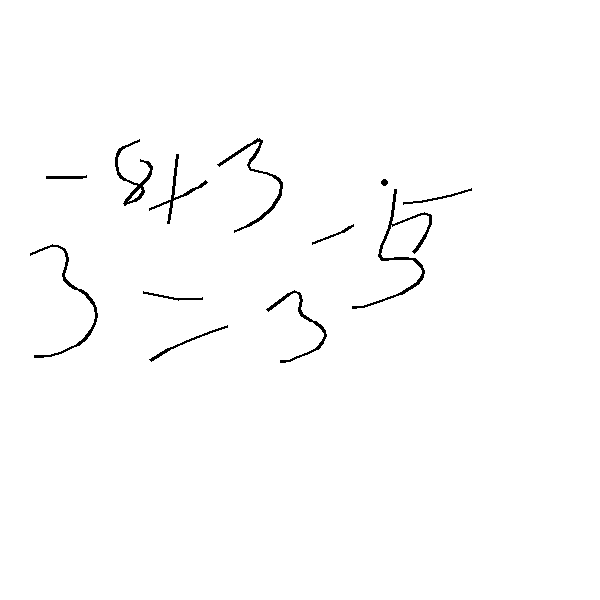 3^{-8+3} = 3^{-5}